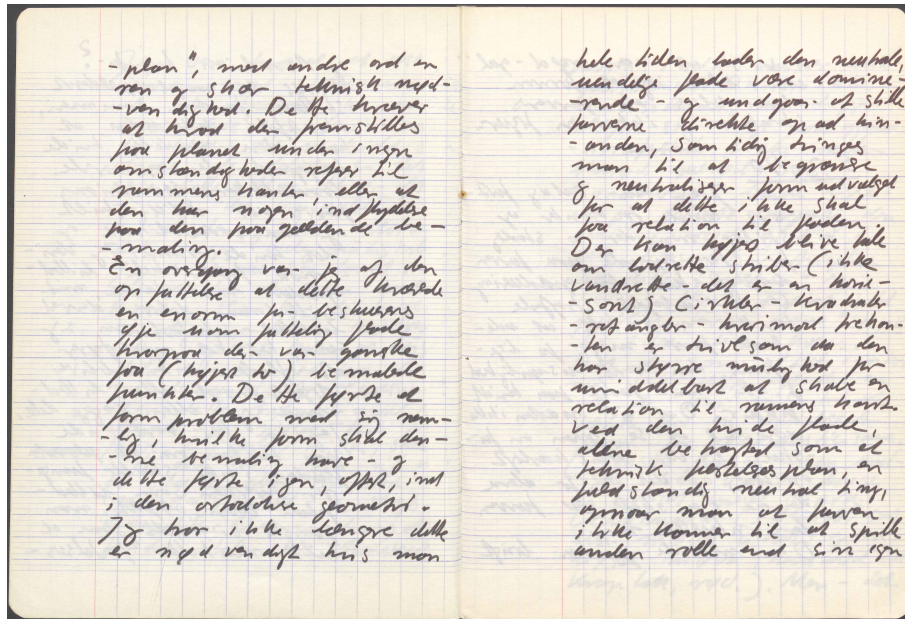 -plan", med andre ord en
ren og skær teknisk nød-
-vendighed. Dette kræver
at hvad der fremstilles
paa planet under ingen
omstændigheder refererer til
rammens kanter, eller at
den har nogen indflydelse
paa den paagældende be-
-maling.
En overgang var jeg af den
opfattelse at dette krævede
en enorm for beskuerens
øje uom fattelig flade
hvorpaa der var ganske
faa (højest to) bemalede
punkter. Dette førte et
form problem med sig nem-
-lig, hvilke form skal den-
-ne bemaling have - og
dette førte igen, oftest, ind
i den ortodokse geometri.
Jeg tror ikke længere dette
er nødvendigt hvis man
hele tiden lader den neutrale,
uendelige flade være domine-
-rende - og undgaar at stille
farverne direkte op ad hin-
-anden, samtidig tvinges
man til at begrænse
og neutralisere formudvalget
for at dette ikke skal
faa relation til fladen.
Der kan højest blive tale
om lodrette striber (ikke
vandrette - det er en hori-
-sont) Cirkler - kvadrater
-retangler - hvorimod trekan-
-ten er tvivlsom da den
har større mulighed for
umiddelbart at skabe en
relation til ramens kant.
Ved den hvide flade,
alene be tragted som et
teknisk fastelses plan, en
fuldstændig neutral ting,
opnaar man at farven
ikke kommer til at spille
anden rolle end sin egen